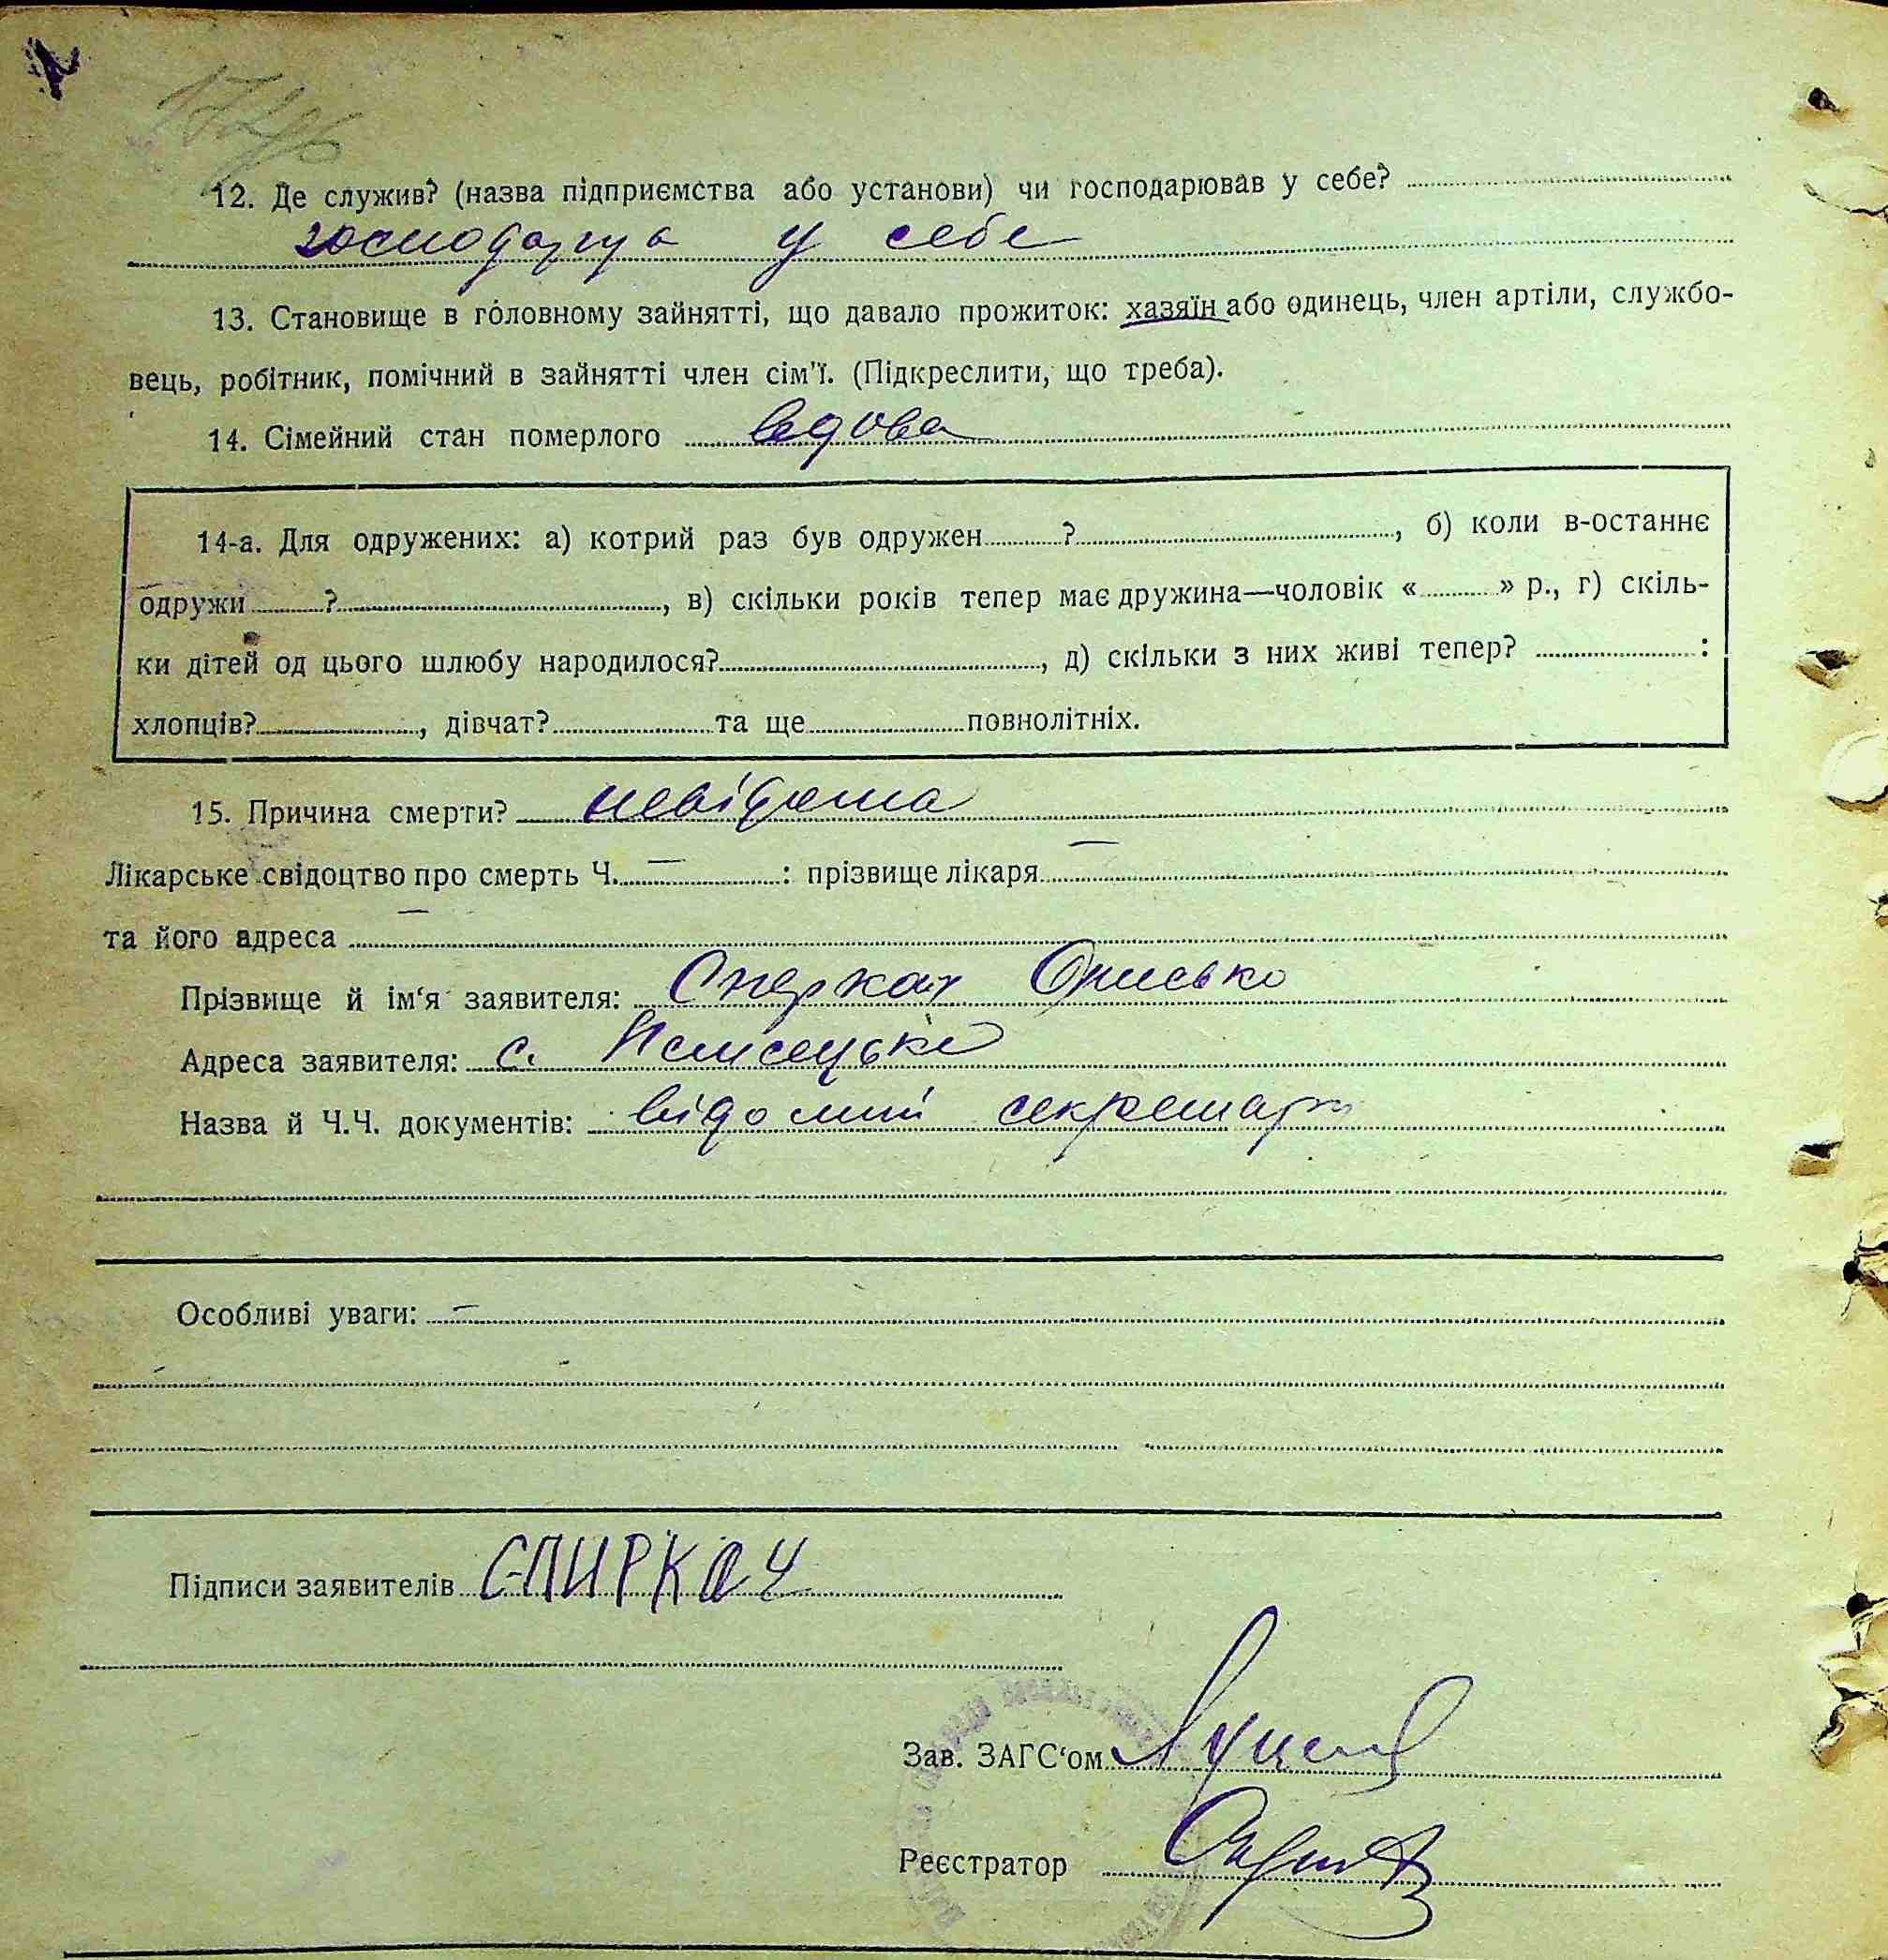 12. Де служив? (назва підприємства або установи) чи господарював у себе?
господарка у себе
13. Становище в головному зайнятті, що давало прожиток: хазяїн або одинець, член артіли, службо-
вець, робітник, помічний в зайнятті член сім'ї. (Підкреслити, що треба).
14. Сімейний стан померлого вдова
14-а. Для одружених: а) котрий раз був одружен ?, б) коли в-останнє
одружи ?, в) скільки років тепер має дружина—чоловік « » р., г) скіль-
ки дітей од цього шлюбу народилося?, д) скільки з них живі тепер? :
хлопців?, дівчат? та ще повнолітніх.
15. Причина смерти? невідома
Лікарське свідоцтво про смерть Ч. — : прізвище лікаря —
та його адреса —
Прізвище й ім‘я заявителя: Спиркач
Адреса заявителя: с.
Назва й Ч.Ч. документів: відомий секретарю
Особливі уваги: —
Підписи заявителів СПИРКАЧ
Зав. ЗАГС‘ом
Реєстратор